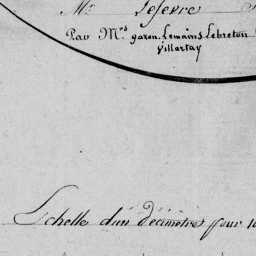 Mr. Lefevre
Par Mrs garon. Lemains Lebreton
Villartay
Echelle d'un décimètre pour